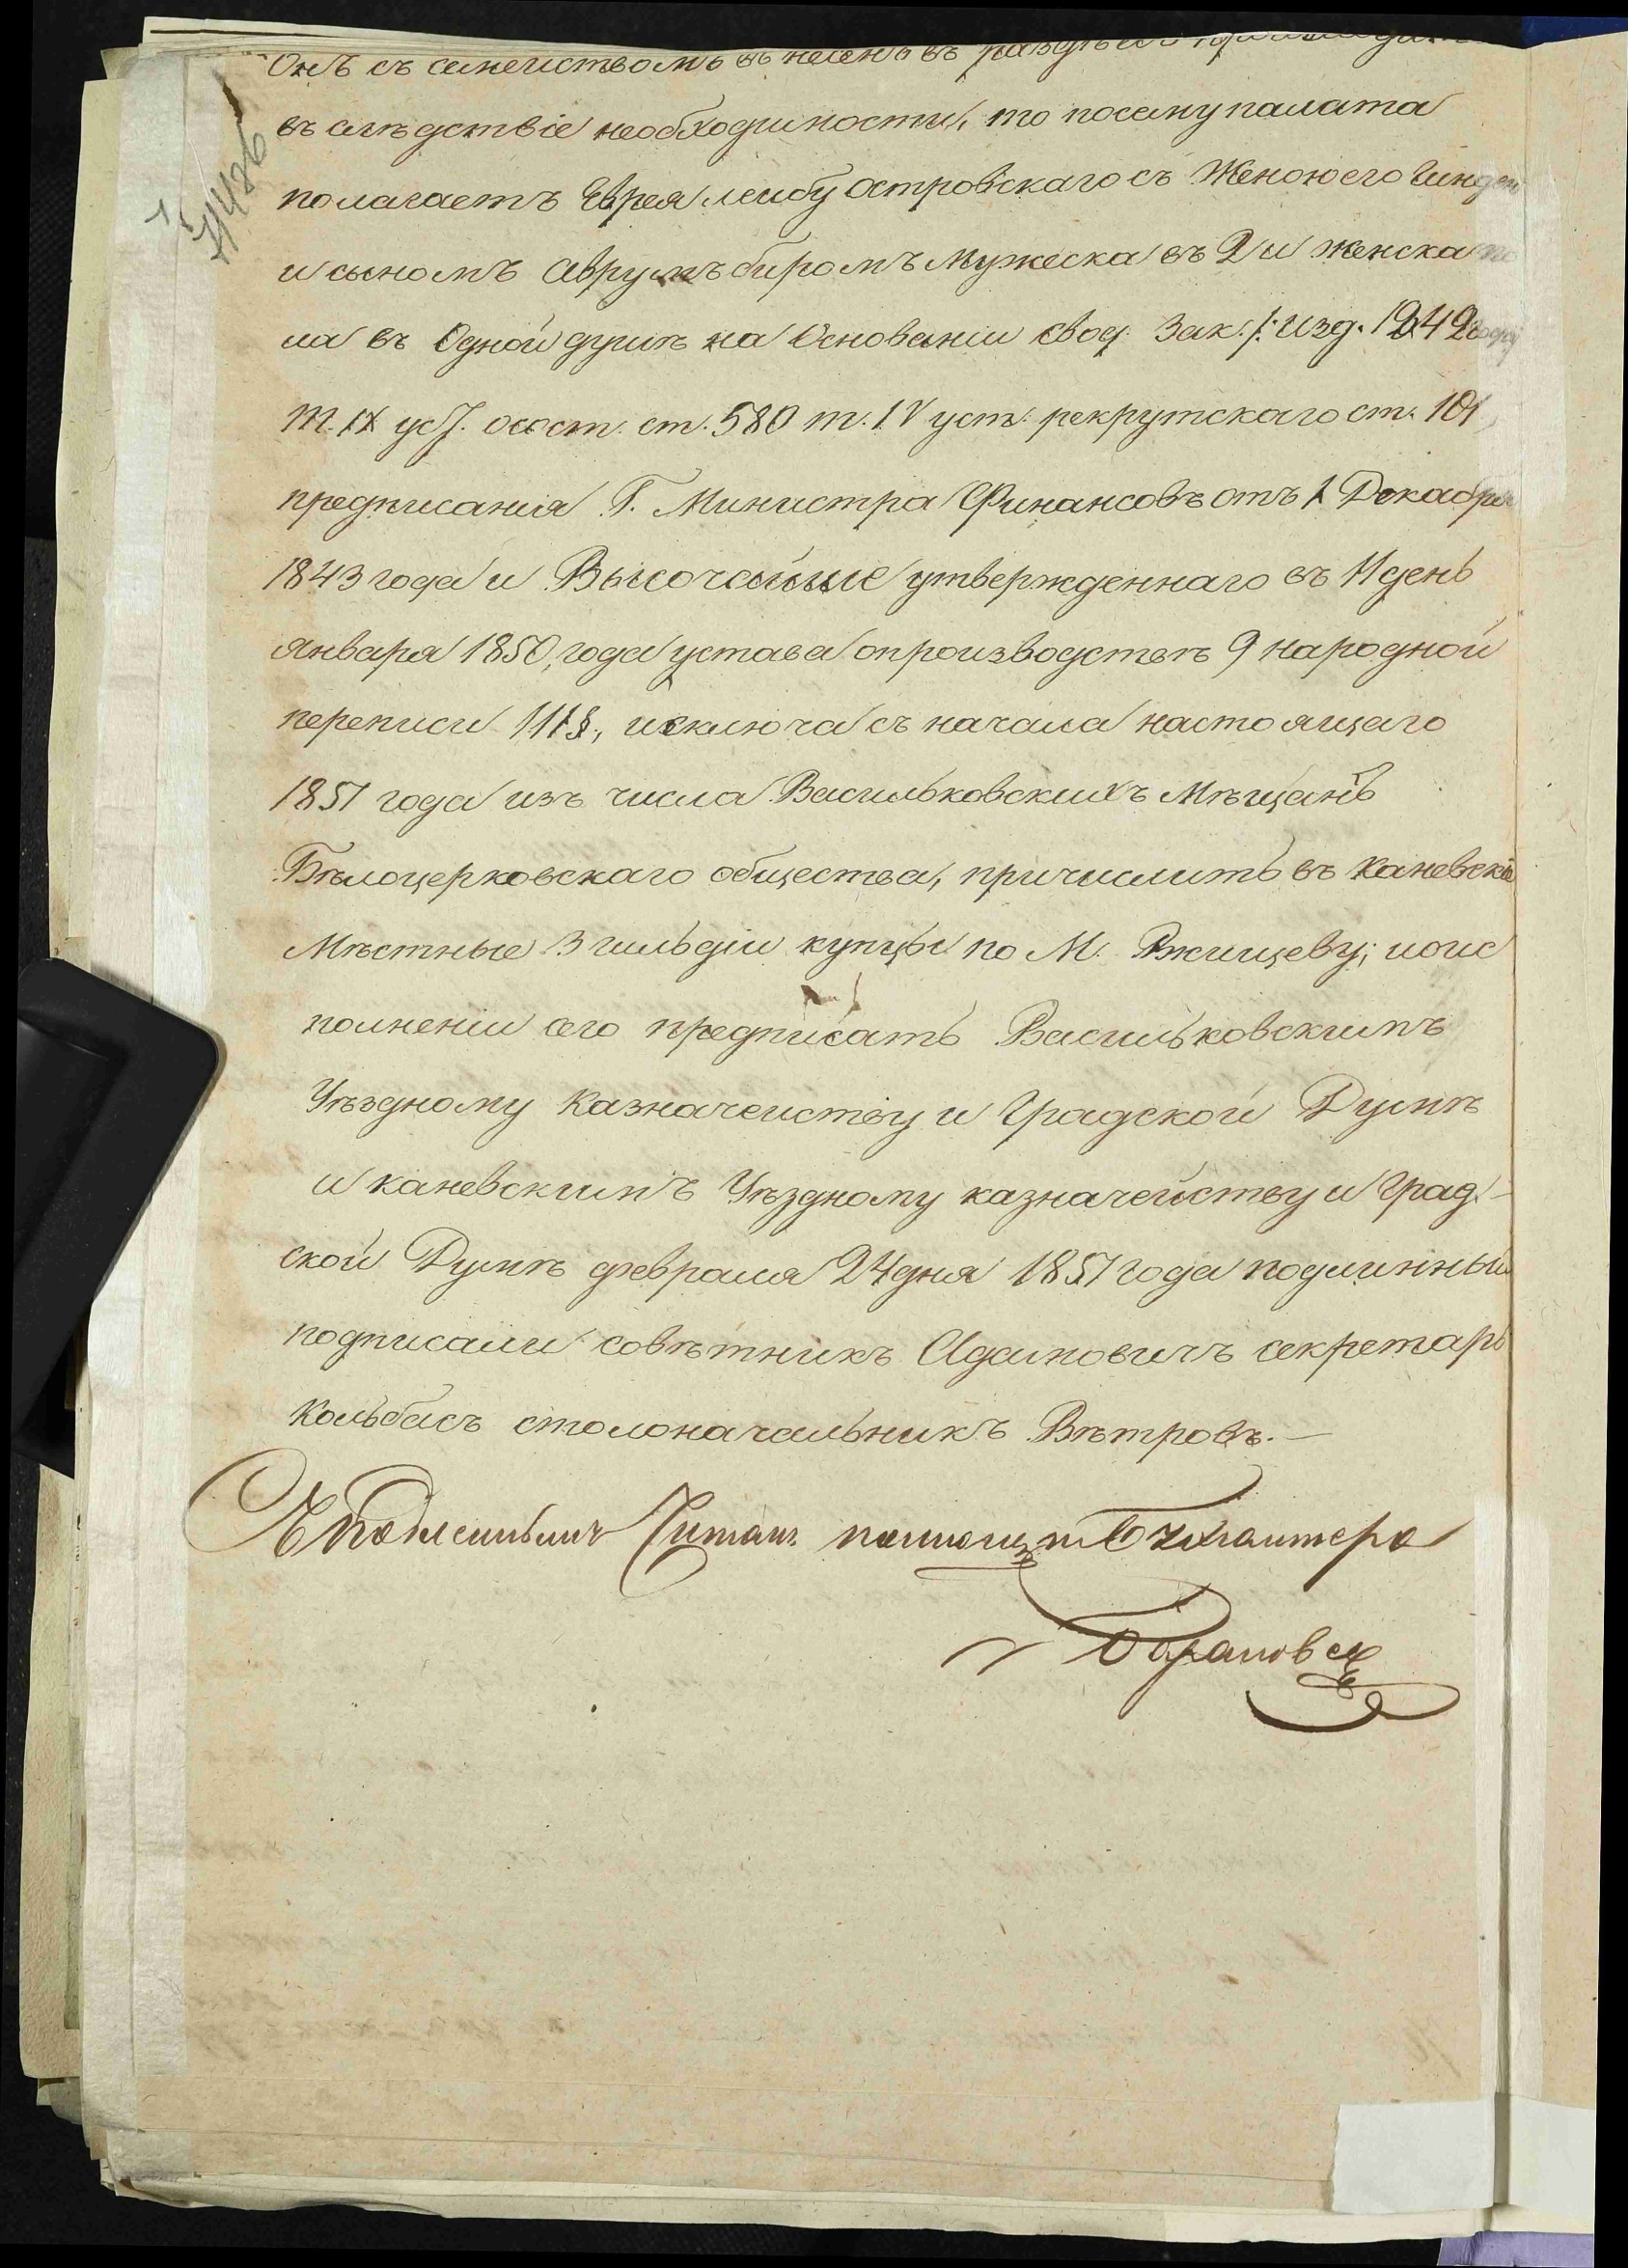 Онъ съ семействомъ внесенъ въ
въ слѣдствіе необходимости, то посему палата
полагаетъ Еврея лейбу островскаго съ Женою его
и сыномъ Аврумъ биромъ Мужеска въ 2 и женска по
ла въ Одной душѣ на Основаніи свод. Зак. /: изд. 1842 года
т. IX о сост. ст. 580 т. IV уст. рекрутскаго ст. 101
предписанія Г. Министра Финансовъ отъ 1 Декабря
1843 года и Высочайше утвержденнаго въ 11 день
января 1850, года устава о производствѣ 9 народной
переписи 111 §, исключа съ начала настоящаго
1851 года изъ числа Васильковскихъ Мѣщанъ
Бѣлоцерковскаго общества, причислить въ каневскіе
Мѣстные 3 гильдіи купцы по М. Ржищеву; и о ис
полненіи сего предписать Васильковскимъ
Уѣздному Казначейству и Градской Думѣ
и каневскимъ Уѣздному казначейству и Град-
ской Думѣ февраля 24 дня 1851 года подлинный
подписали совѣтникъ Адамовичъ секретарь
Кольбасъ столоначальникъ Вѣтровъ.—
Съ Подлиннымъ Читалъ помощн Бухгалтера